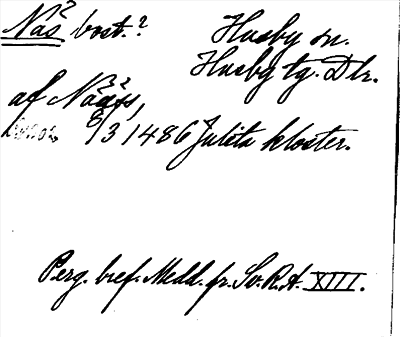 Näs bost.?
Husby sn.
Husby tg. Dlr.
af Näässs,
8/3 1486 Julita kloster.
Perg. bref. Medd. fr. Sv. R. A. XIII.